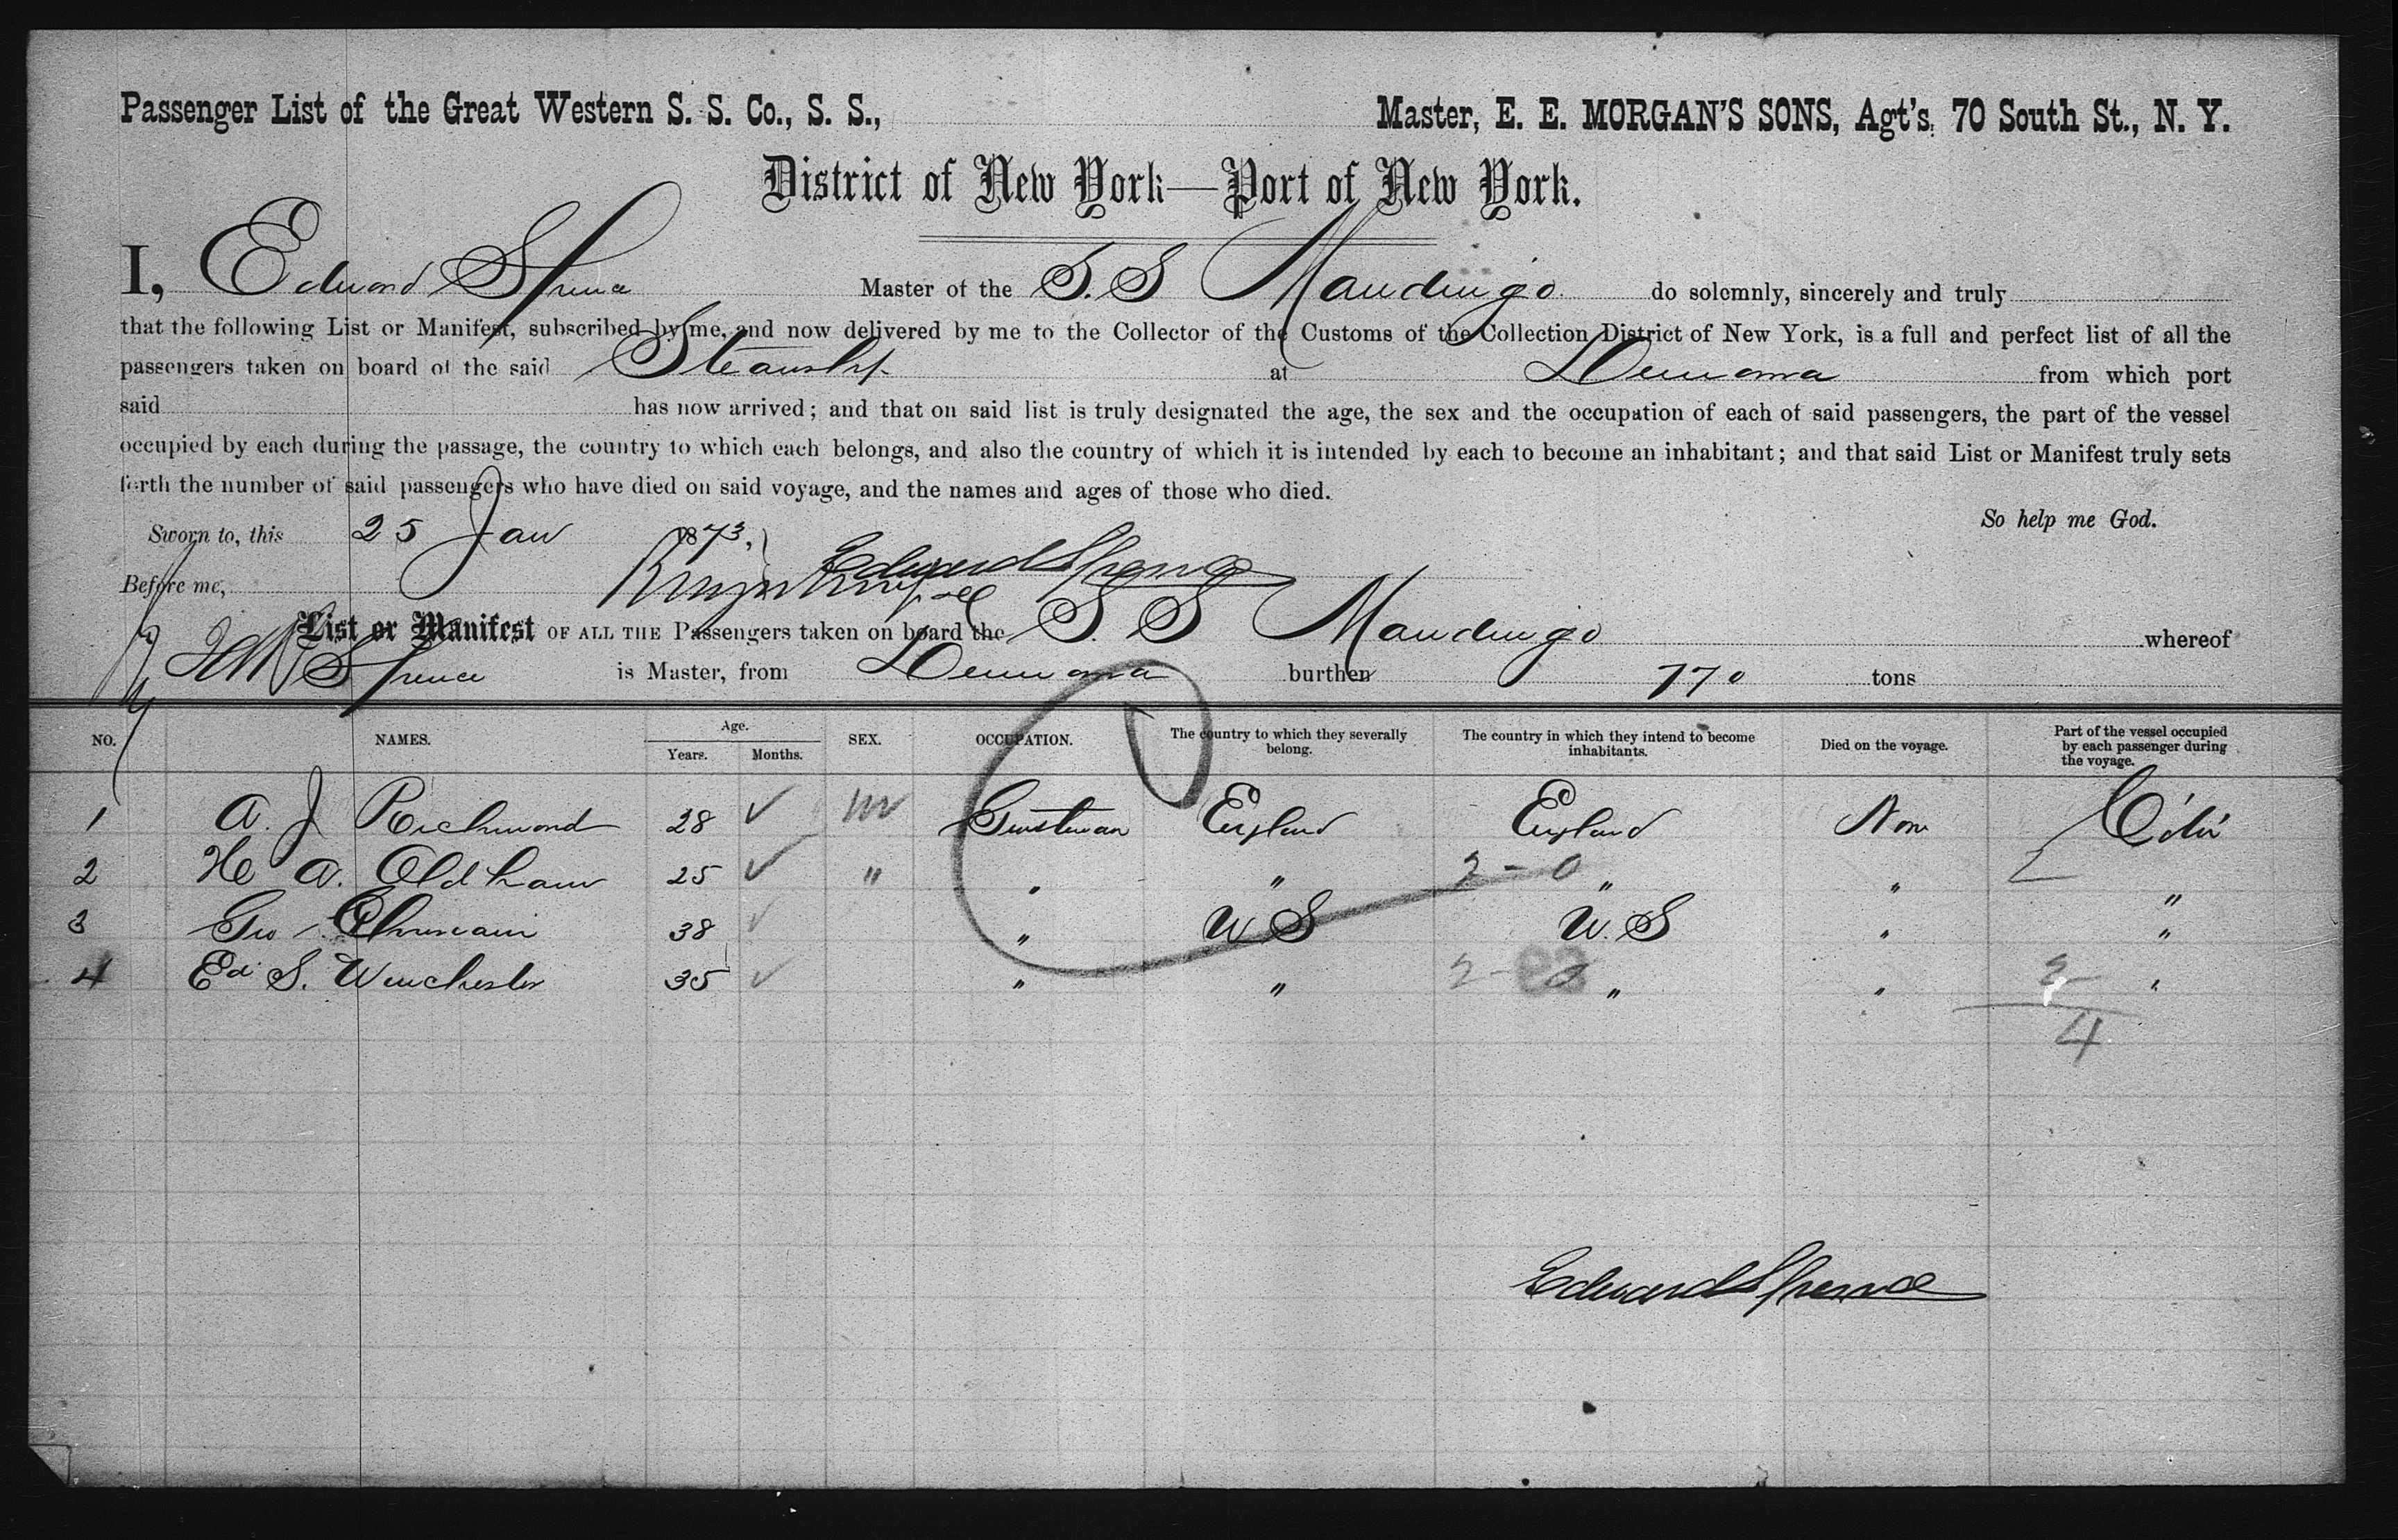 Passenger List of the Great Western S. S. Co., S. S., Master, E. E. MORGAN'S SONS, Agt's, 70 South St., N. Y.
District of New York—Port of New York.
I, Edward Spence Master of the S. S Mandingo do solemnly, sincerely and truly
that the following List or Manifest, subscribed by me, and now delivered by me to the Collector of the Customs of the Collection District of New York, is a full and perfect list of all the
passengers taken on board of the said Steamship at from which port
said has now arrived; and that on said list is truly designated the age, the sex and the occupation of each of said passengers, the part of the vessel
occupied by each during the passage, the country to which each belongs, and also the country of which it is intended by each to become an inhabitant; and that said List or Manifest truly sets
forth the number of said passengers who have died on said voyage, and the names and ages of those who died.
So help me God.
Sworn to, this 25 Jan 1873,
Edward Spence
Before me,
List or Manifest OF ALL THE Passengers taken on board the S. S Mandingo whereof
Spence is Master, from burthen 770 tons
NO. NAMES. Age. Years. Months. SEX. OCCUPATION. The country to which they severally belong. The country in which they intend to become inhabitants. Died on the voyage. Part of the vessel occupied by each passenger during the voyage.
1 A. J Richmond 28 ✓ m England England Non
2 H A. Oldham 25 ✓ " " " " " "
2-0
3 Geo 38 ✓ " U S U. S " "
4 Ed S. Winchester 35 ✓ " " " " "
2-
4
Edward Spence